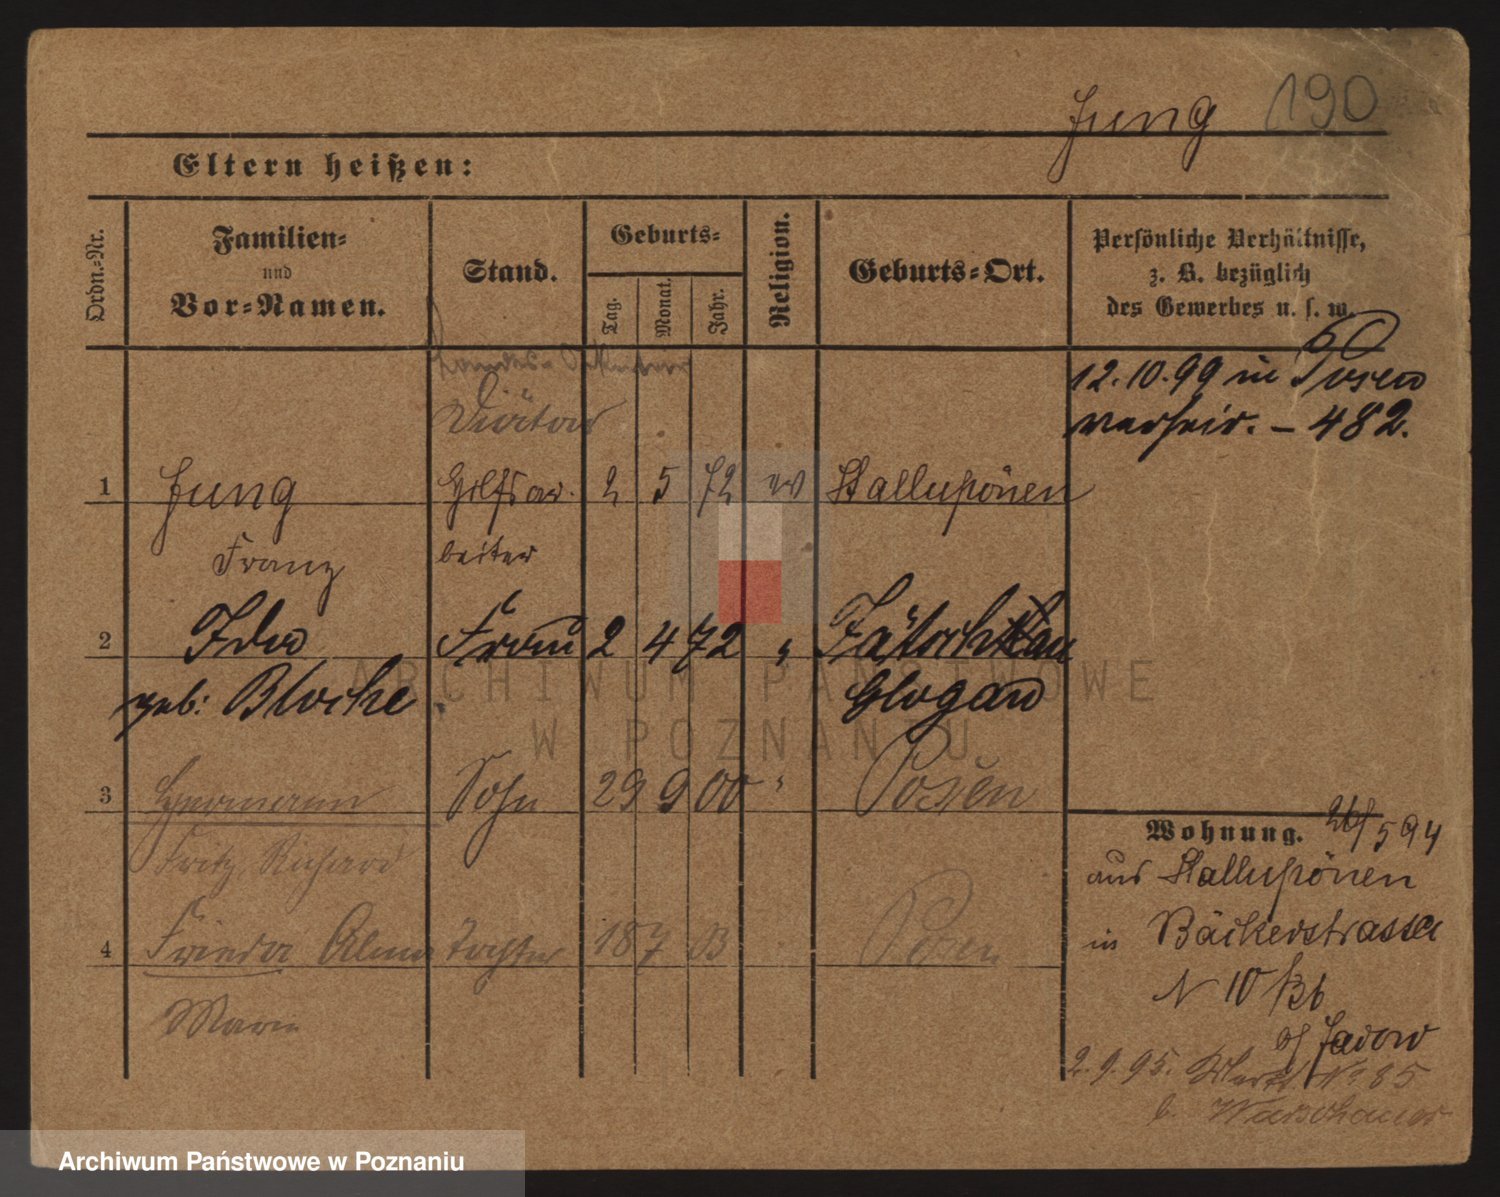 Jung 190
Eltern heißen:
Ordn.-Nr.
Familien-
und
Vor-Namen.
Stand.
Geburts-
Tag.
Monat.
Jahr.
Religion.
Geburts-Ort.
Persönliche Verhältnisse,
z. B. bezüglich
des Gewerbes u. s. w.
12.10.99 in Posen
verheir. - 482.
Diätar
1 Jung Hilfsar- 2 5 72 ev Stallupönen
Franz beiter
2 Ida Frau 2 4 72 "
geb: Blocke Glogau
3 Hermann Sohn 29 9 00 " Posen
Fritz, Richard
4 Frieda Alma Tochter 18 7 Posen
Marie
Wohnung. 26/5 94
aus Stallupönen
in Bäckerstrasse
N 10
2.9.95. No 85
b. Warschauer
ARCHIWUM PAŃSTWOWE
W POZNANIU
Archiwum Państwowe w Poznaniu